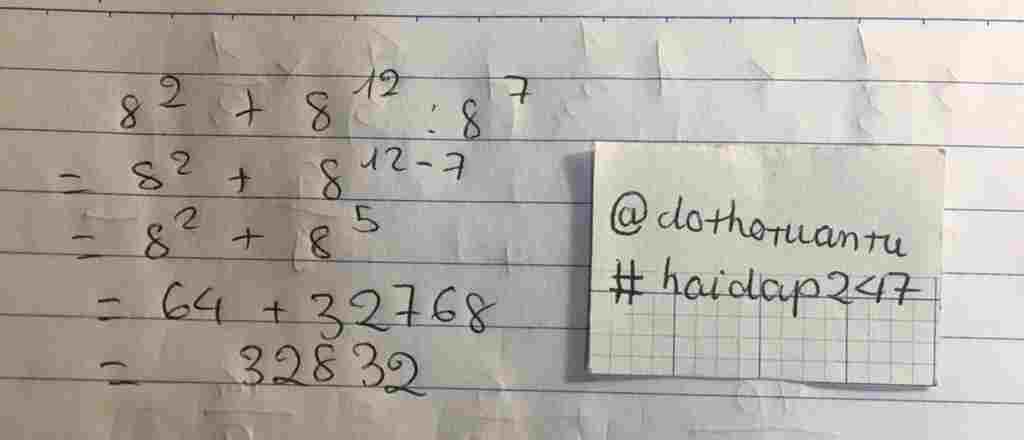 8² + 8¹² : 8⁷
= 8² + 8¹²⁻⁷
= 8² + 8⁵
= 64 + 32768
= 32832
@dothotuantu
#haidap247